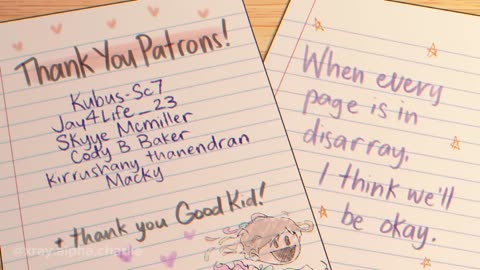 Thank You Patrons!
Kubus-Sc7
Jay4Life_23
Skyye Mcmiller
Cody B Baker
Kirrushany thanendran
Macky
+ thank you Good Kid!
When every
page is in
disarray,
I think we'll
be okay.
@xray.alpha.charlie